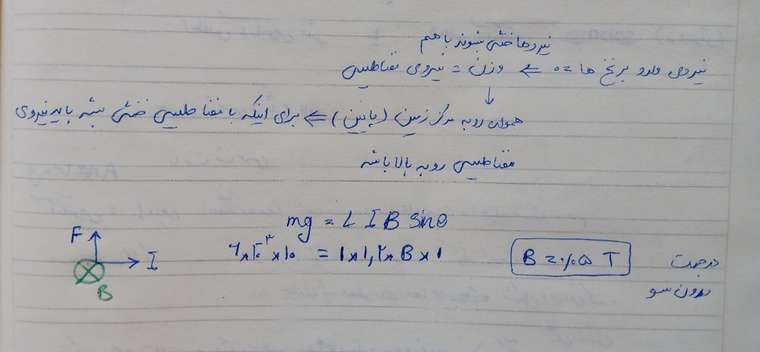 نیروها خنثی شوند با هم
نیروی وارد بر نخ ها = ۰ ⇐ وزن = نیروی مغناطیسی
↓
همواره رو به مرکز زمین (پایین) ⇐ برای اینکه با مغناطیسی خنثی بشه باید نیروی
مغناطیسی رو به بالا باشه
mg = L I B sinθ
۶×۱۰⁻³×۱۰ = ۱×۱٫۲×B×۱
B = ۰٫۰۵ T
در جهت
درون سو
F
I
B